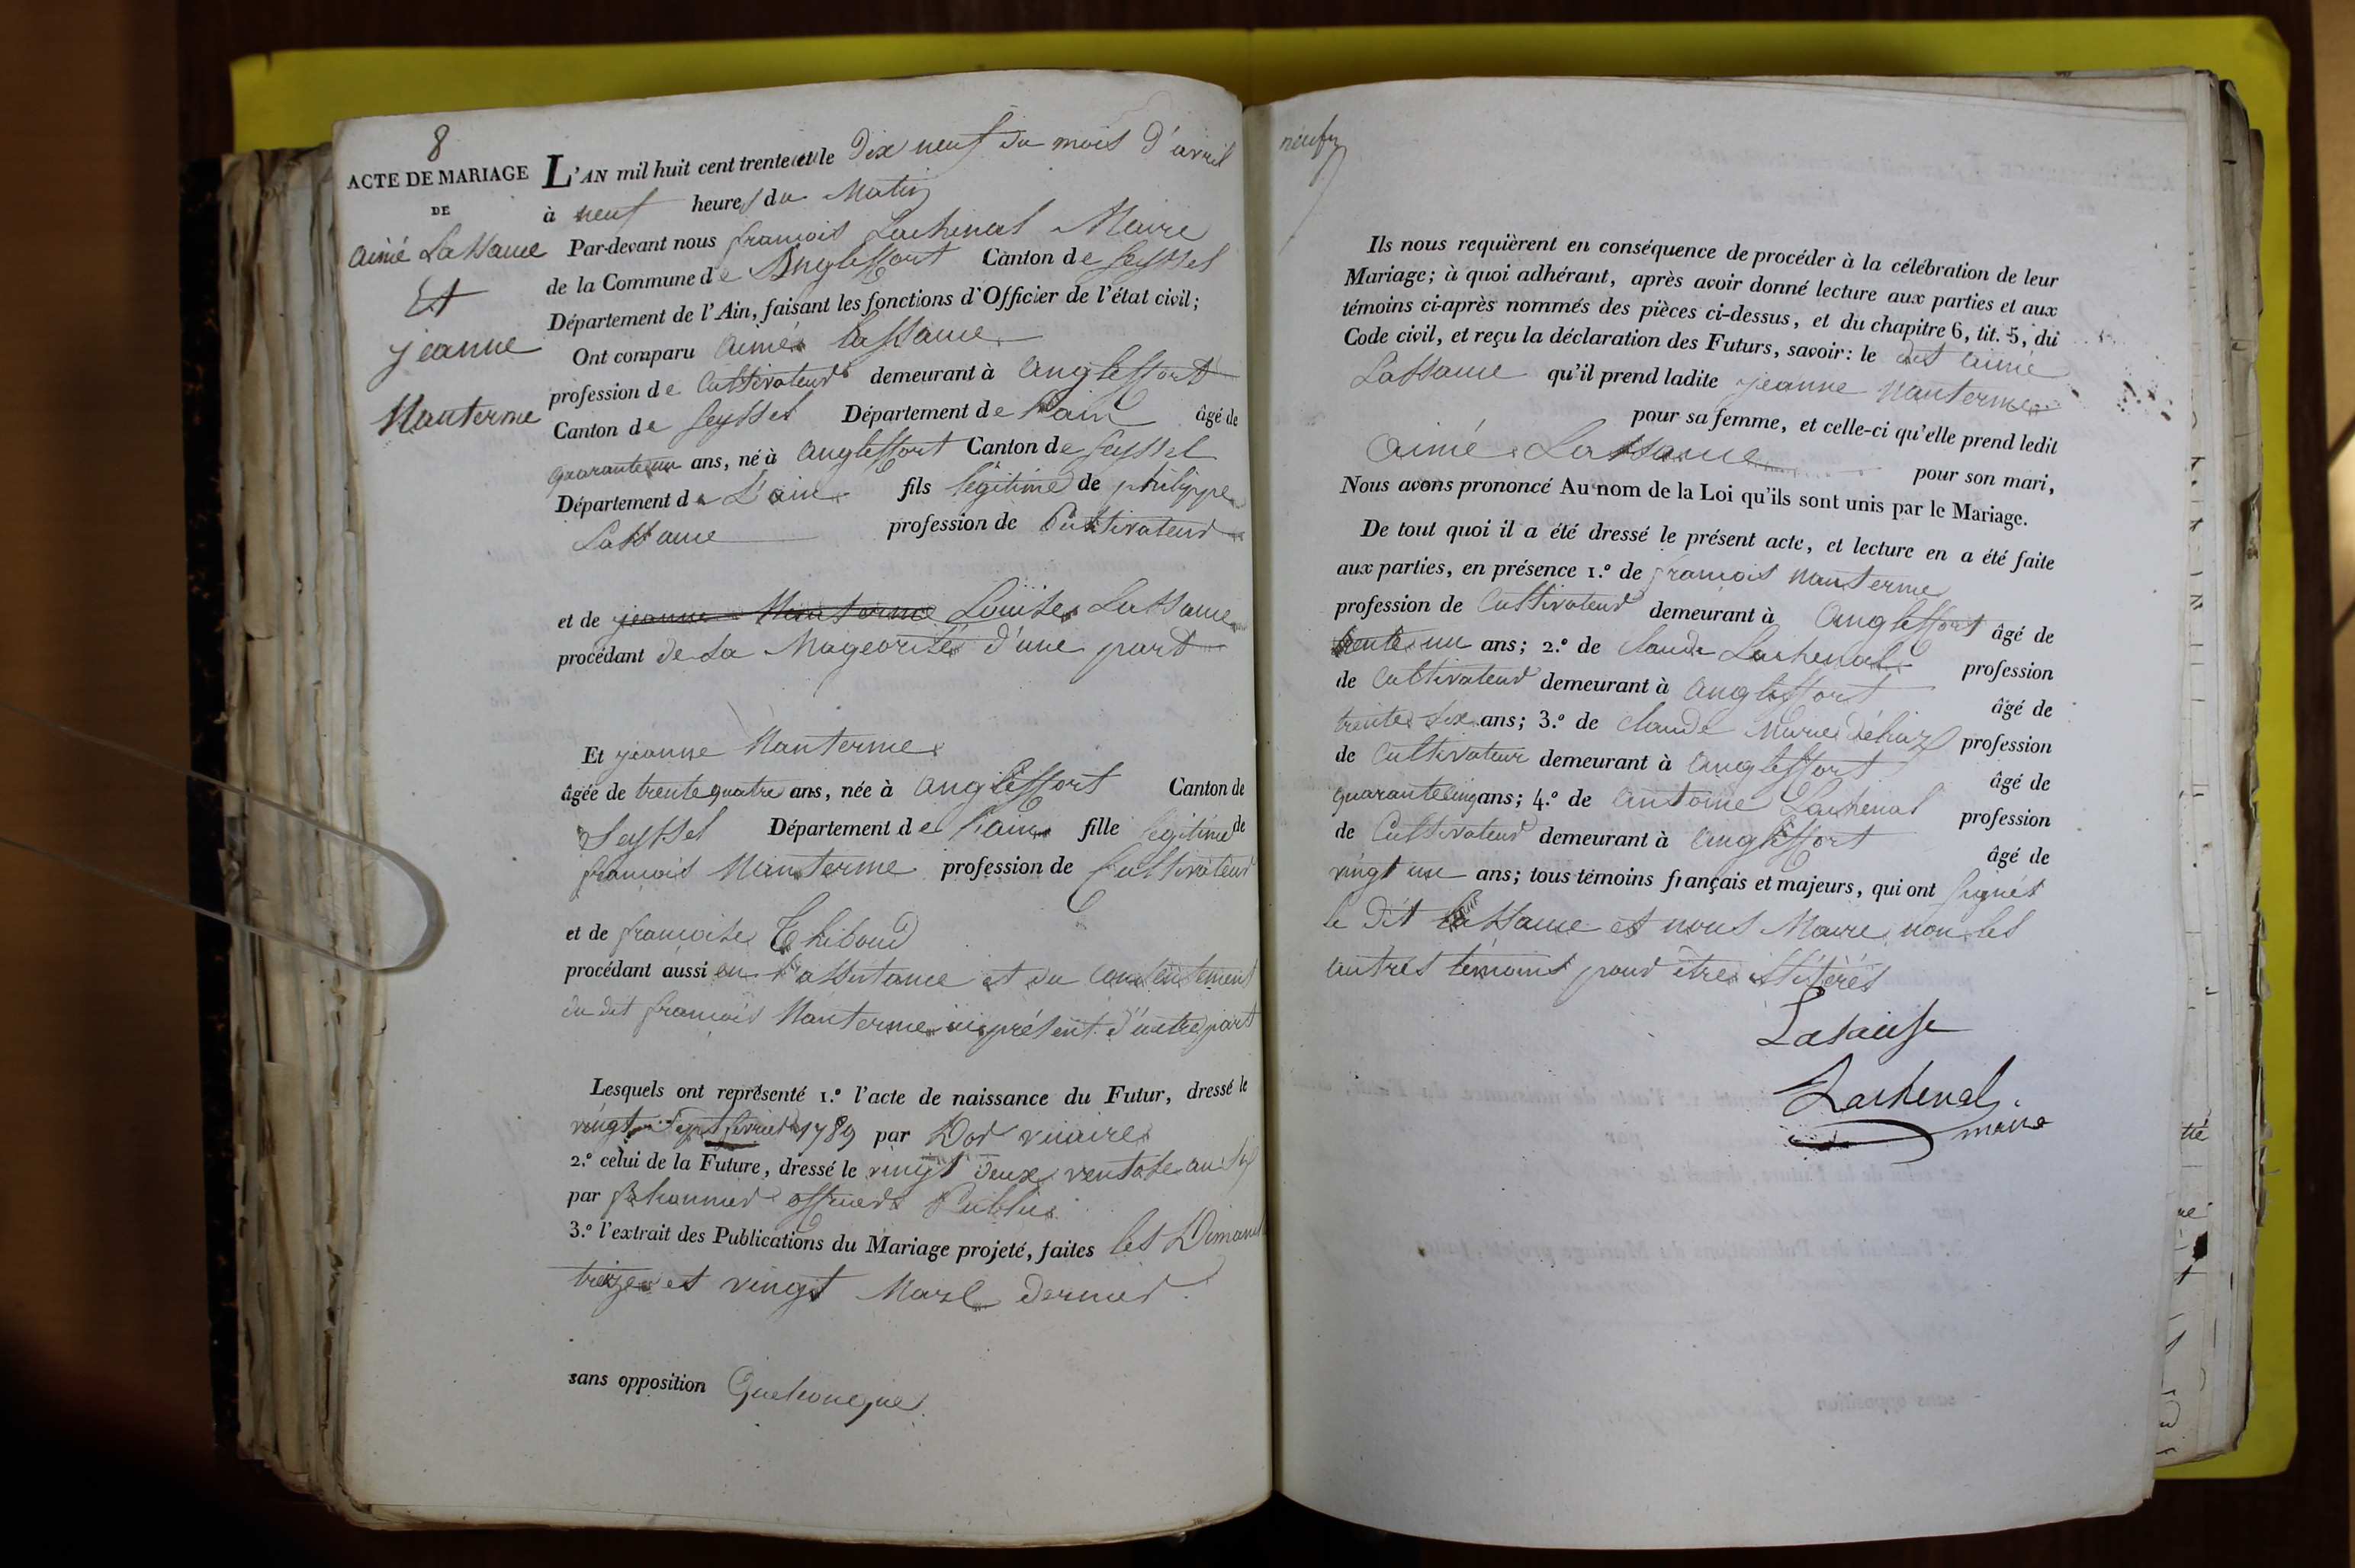 8
ACTE DE MARIAGE
DE
aimé Lassaue
Et
jeanne
Nanterme
L'AN mil huit cent trente et le Dix neuf du mois d'avril
à neuf heures du Matin
Par-devant nous françois Lachenal Maire
de la Commune de Anglessort Canton de Seyssel
Département de l'Ain, faisant les fonctions d'Officier de l'état civil;
Ont comparu aimé Lassaue
profession de Cultivateur demeurant à Anglessort
Canton de Seyssel Département de L'ain âgé de
quarante un ans, né à Anglessort Canton de Seyssel
Département de L'ain fils légitime de philippe
Lassaue profession de Cultivateur
et de jeanne Nanterme Louise Lassaue
procédant de La Mageorité d'une part
Et jeanne Nanterme
âgée de trente quatre ans, née à Anglessort Canton de
Seyssel Département de l'ain fille légitime de
françois Nanterme profession de Cultivateur
et de françoise Thiboud
procédant aussi en l'assistance et du consentement
du dit françois Nanterme ici présent d'autre part
Lesquels ont représenté 1.º l'acte de naissance du Futur, dressé le
vingt sept février 1789 par Dor vicaire
2.º celui de la Future, dressé le vingt deux ventose an
par officier Public
3.º l'extrait des Publications du Mariage projeté, faites les Dimanch
treize et vingt Mars dernier.
sans opposition Quelconque.
neuf
Ils nous requièrent en conséquence de procéder à la célébration de leur
Mariage; à quoi adhérant, après avoir donné lecture aux parties et aux
témoins ci-après nommés des pièces ci-dessus, et du chapitre 6, tit. 5, du
Code civil, et reçu la déclaration des Futurs, savoir: le dit aimé
Lassaue qu'il prend ladite jeanne Nanterme
pour sa femme, et celle-ci qu'elle prend ledit
aimé Lassaue pour son mari,
Nous avons prononcé Au nom de la Loi qu'ils sont unis par le Mariage.
De tout quoi il a été dressé le présent acte, et lecture en a été faite
aux parties, en présence 1.º de françois Nanterme
profession de Cultivateur demeurant à Anglessort âgé de
trente un ans; 2.º de Claude Lachenal profession
de Cultivateur demeurant à Anglessort âgé de
trente six ans; 3.º de Claude Marie profession
de Cultivateur demeurant à Anglessort âgé de
quarante cinq ans; 4.º de Antoine Lachenal profession
de Cultivateur demeurant à Anglessort âgé de
vingt un ans; tous témoins français et majeurs, qui ont signés
le Dit Lassaue et nous Maire non les
autres témoins pour être illitérés
Lasause
Lachenal
maire